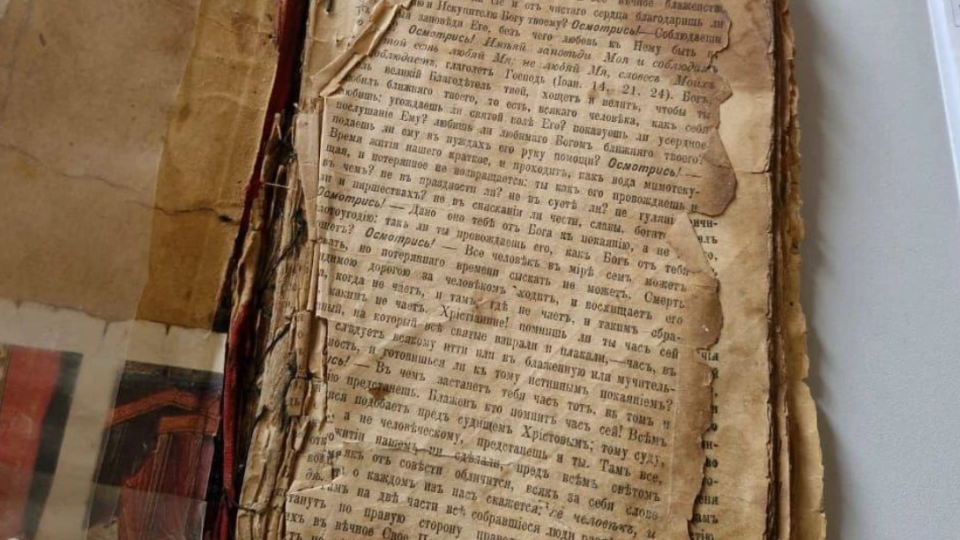 и отъ чистаго сердца благодаришь ли
и Искупителю Богу твоему? Осмотрись!—Соблюдаешь
заповѣди Его, безъ чего любовь къ Нему быть
Осмотрись! Имѣяй заповѣди Моя и соблюдаяй
той есть любяй Мя; не любяй Мя, словесъ Моихъ
соблюдаетъ, глаголетъ Господь (Іоан. 14, 21. 24). Богъ,
великій Благодѣтель твой, хощетъ и велитъ, чтобы ты
любилъ ближняго твоего, то есть, всякаго человѣка, какъ себя
любишь; угождаешь ли святой волѣ Его? показуешь ли усердное
послушаніе Ему? любишь ли любимаго Богомъ ближняго твоего?
подаешь ли ему въ нуждахъ его руку помощи? Осмотрись! —
Время житія нашего краткое, и проходитъ, какъ вода мимотеку-
щая, и потерянное не возвращается: ты какъ его провождаешь и
въ чемъ? не въ праздности ли? не въ суетѣ ли? не гуляні
и пиршествахъ? не въ снисканіи ли чести, славы, богат
Осмотрись! — Дано оно тебѣ отъ Бога къ покаянію, а не
плотоугодію: такъ ли ты провождаешь его, какъ Богъ отъ тебя
Осмотрись! — Все человѣкъ въ мірѣ семъ можетъ
но потеряннаго времени сыскать не можетъ. Смерть
дорогою за человѣкомъ ходитъ, и восхищаетъ его
когда не чаетъ, и тамъ, гдѣ не чаетъ, и такимъ обра-
какимъ не чаетъ. Хрістіанине! помнишь ли ты часъ сей
на который всѣ святые взирали и плакали,—часъ, въ
слѣдуетъ всякому итти или въ блаженную или мучитель-
и готовишься ли къ тому истиннымъ покаяніемъ?
— Въ чемъ застанетъ тебя часъ тотъ, въ томъ и
предстанешь. Блаженъ кто помнитъ часъ сей! Всѣмъ
подобаетъ предъ судищемъ Хрістовымъ; тому суду,
а не человѣческому, предстанешь и ты. Тамъ все,
житіи нашемъ ни сдѣлали, предъ всѣмъ свѣтомъ
отъ совѣсти обличится, всякъ за себя слово
о каждомъ изъ насъ скажется: се человѣкъ, и
на двѣ части всѣ собравшіеся люди
по правую сторону
въ вѣчное Свое